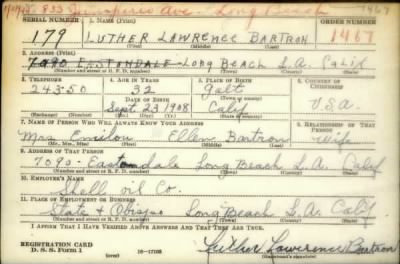 833 Junipero Ave Long Beach 1467
SERIAL NUMBER 1. NAME (Print) ORDER NUMBER
179 LUTHER LAWRENCE BARTRON 1467
(First) (Middle) (Last)
2. ADDRESS (Print)
7090 EASTONDALE - LONG BEACH L.A. Calif
(Number and street or R. F. D. number) (Town) (County) (State)
3. TELEPHONE 4. AGE IN YEARS 5. PLACE OF BIRTH 6. COUNTRY OF CITIZENSHIP
243-50 32 Galt
DATE OF BIRTH (Town or county)
Sept 23 1908 Calif U.S.A.
(Exchange) (Number) (Mo.) (Day) (Yr.) (State or country)
7. NAME OF PERSON WHO WILL ALWAYS KNOW YOUR ADDRESS 8. RELATIONSHIP OF THAT PERSON
Mrs Ellen Bartron Wife
(Mr., Mrs., Miss) (First) (Middle) (Last)
9. ADDRESS OF THAT PERSON
7090 - Eastondale Long Beach L.A. Calif
(Number and street or R. F. D. number) (Town) (County) (State)
10. EMPLOYER'S NAME
Shell oil Co.
11. PLACE OF EMPLOYMENT OR BUSINESS
State & Obispo Long Beach L.A. Calif
(Number and street or R. F. D. number) (Town) (County) (State)
I AFFIRM THAT I HAVE VERIFIED ABOVE ANSWERS AND THAT THEY ARE TRUE.
REGISTRATION CARD
D. S. S. Form 1 16-17105 Luther Lawrence Bartron
(Registrant's signature)